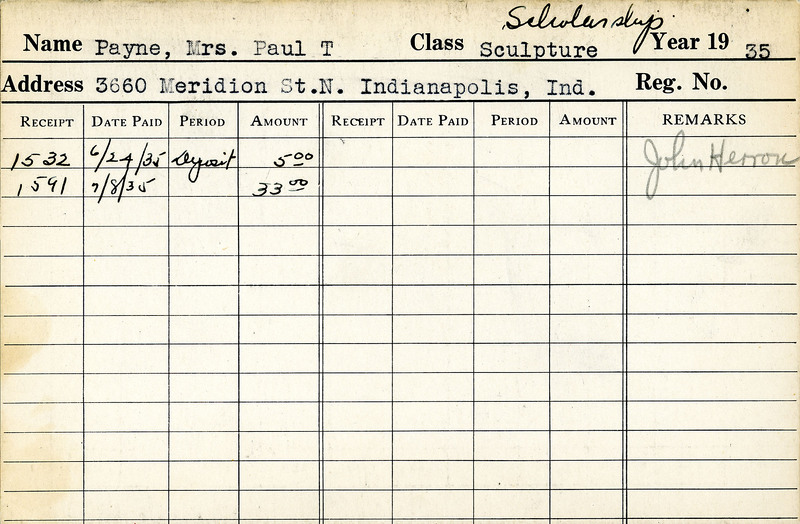 Scholarship
Name Payne, Mrs. Paul T Class Sculpture Year 19 35
Address 3660 Meridion St.N. Indianapolis, Ind. Reg. No.
RECEIPT DATE PAID PERIOD AMOUNT RECEIPT DATE PAID PERIOD AMOUNT REMARKS
1532 6/24/35 Deposit 5.00 John Herron
1591 7/8/35 33.00